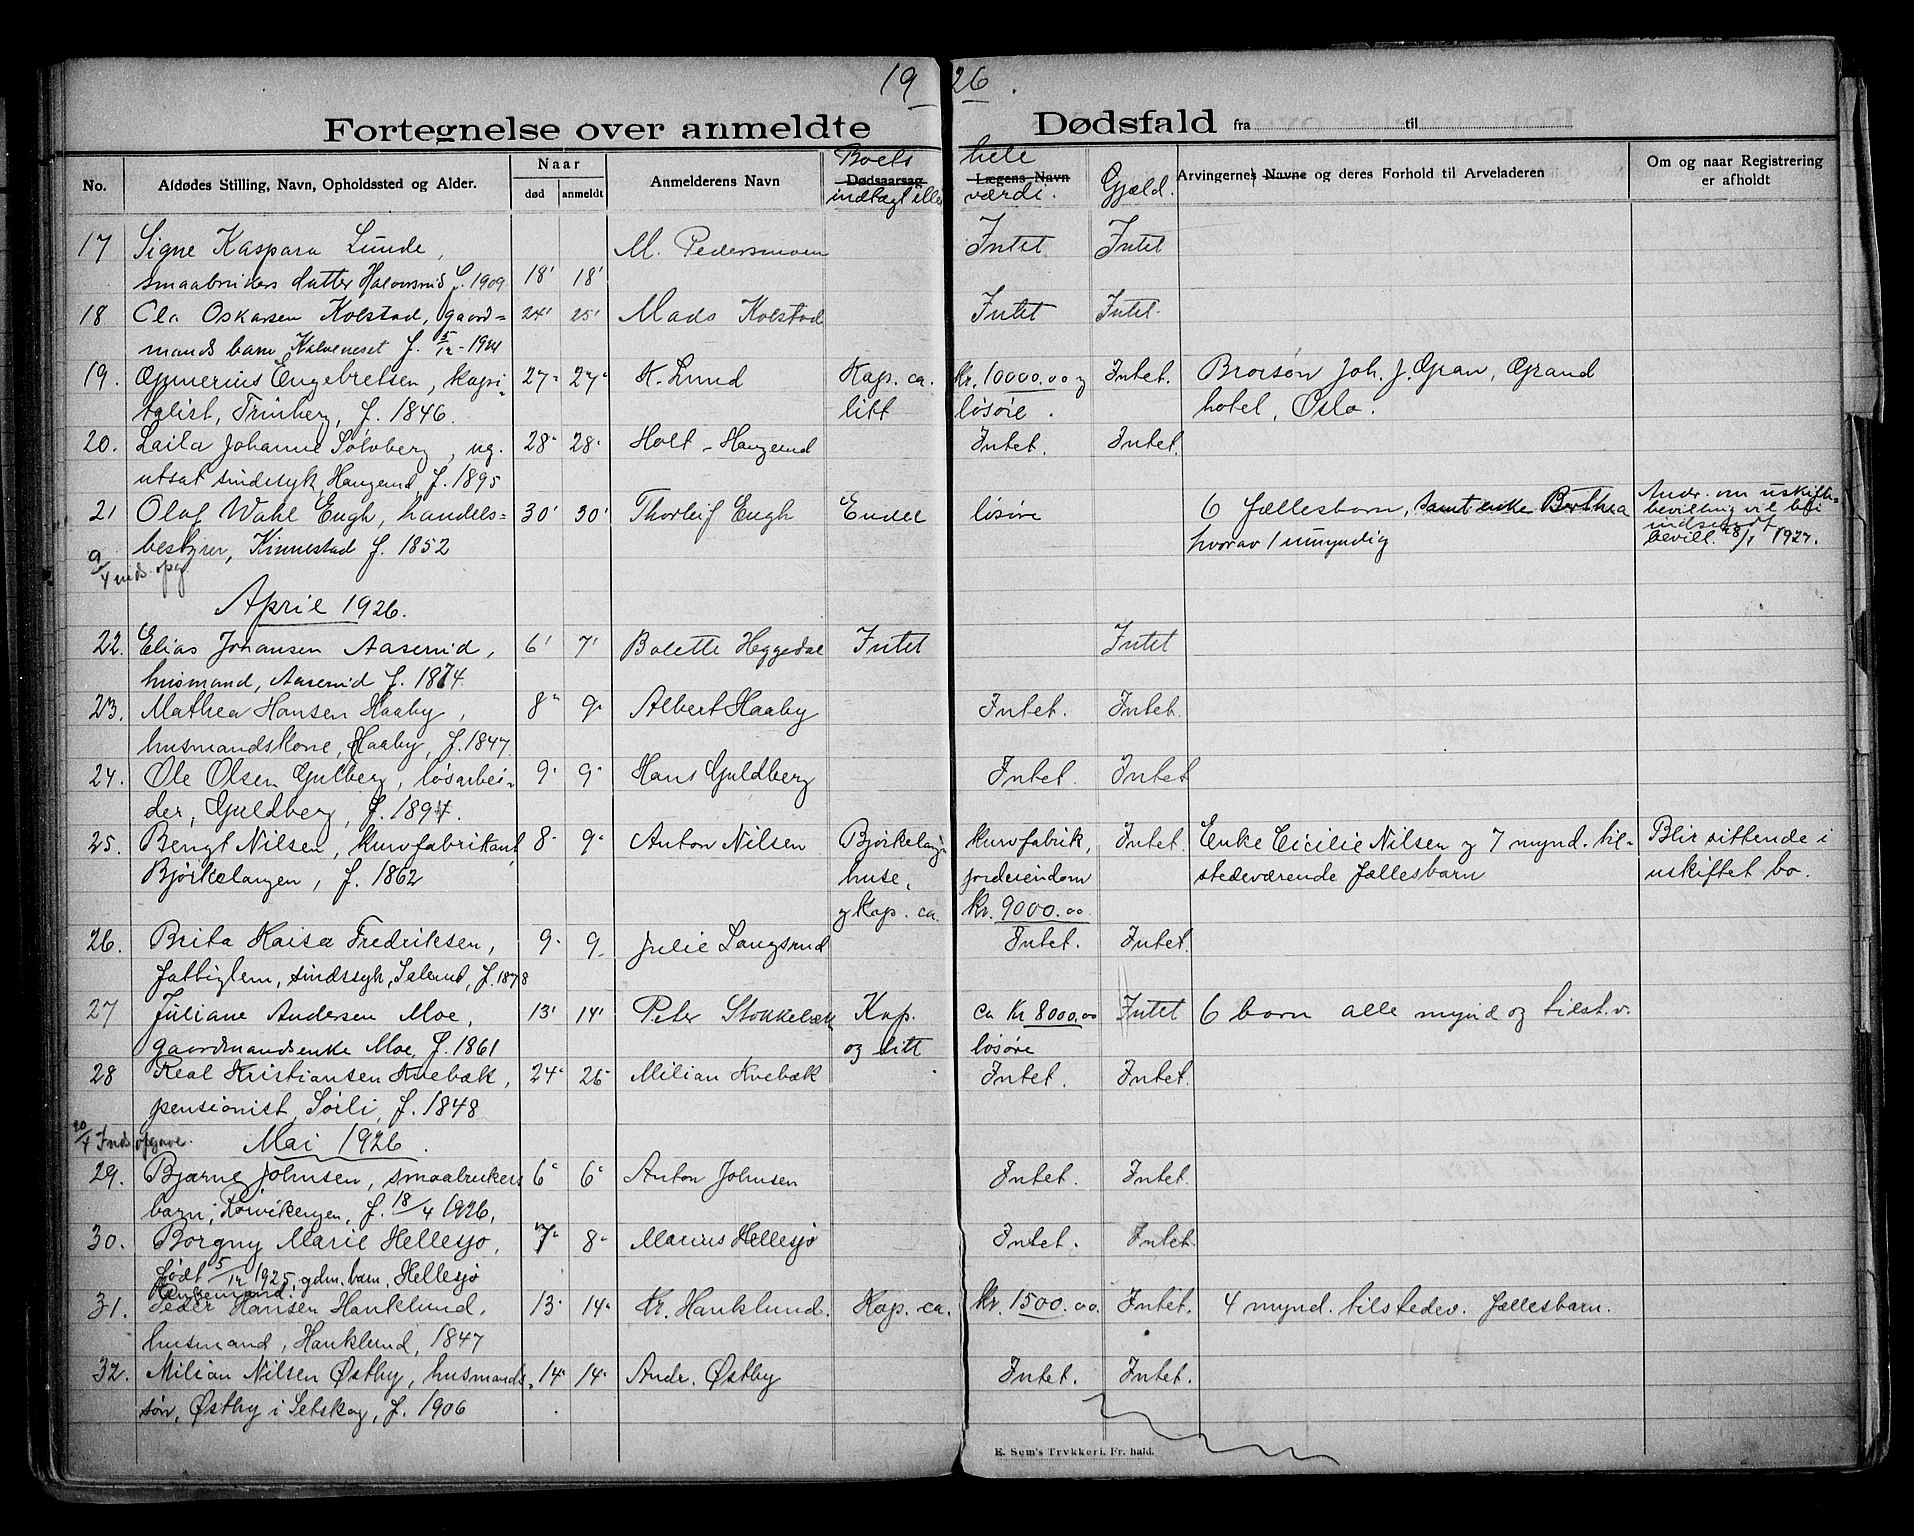 19 26.
Fortegnelse over anmeldte Dødsfald fra til
No. Afdødes Stilling, Navn, Opholdssted og Alder. Naar død anmeldt Anmelderens Navn Dødsaarsag Boets indtægt eller Lægens Navn hele værdi. Gjæld. Arvingernes Navne og deres Forhold til Arveladeren Om og naar Registrering er afholdt
17 Signe Kaspara Lunde, M. Pedersmoen Intet Intet
smaabrukers datter Halvorsrud f. 1909 18' 18'
18 Ola Oskarsen Kolstad, gaard= 24' 25' Mads Kolstad Intet Intet.
mands barn Kalveneset f. 5/12-1924
19. Gunerius Engebretsen, kapi- 27- 27- K. Lund Kap. ca. kr. 10000.00 og Intet. Brorsøn Joh. J. Gran, Grand
talist, Trinberg, f. 1846. litt løsøre. hotel, Oslo.
20. Laila Johanne Sølvberg, ug. 28- 28- Holt-Haugerud Intet. Intet.
utsat sindssyk, Haugerud, f. 1895
21 Olaf Wahl Engh, handels= 30' 30' Thorleif Engh Endel løsøre 6 fællesbarn, samt enke Berthea Andr. om uskifte=
bestyrer, Kinnestad f. 1852 hvorav 1 umyndig bevilling vil bli
indsendt
bevill. 28/1 1927.
9/4 inds. opg
April 1926.
22. Elias Johansen Aaserud, 6' 7' Bolette Heggedal Intet Intet
husmand, Aaserud f. 1874.
23. Mathea Hansen Haaby, 8- 9- Albert Haaby Intet. Intet.
husmandskone, Haaby, f. 1847.
24. Ole Olsen Gulberg, løsarbei- 9- 9- Hans Guldberg Intet. Intet
der, Guldberg, f. 1894.
25. Bengt Nilsen, kurvfabrikant, 8- 9- Anton Nilsen Bjørkelang= kurvfabrik, Intet. Enke Cicilie Nilsen og 7 mynd. til- Blir sittende i
Bjørkelangen, f. 1862 huse, jordeiendom stedeværende fællesbarn uskiftet bo.
og Kap. ca. kr. 9000.00.
26. Brita Kaisa Fredriksen, 9- 9- Julie Langsrud Intet. Intet.
fattiglem, sindssyk, f. 1878
27 Juliane Andersen Moe, 13' 14' Peter Stokkebæk Kap. ca Kr 8000.00 Intet 6 barn alle mynd og tilst.v.
gaardmandsenke Moe, f. 1861 og litt løsøre
28 Real Kristiansen Kvebæk, 24- 26- Milian Kvebæk Intet. Intet.
pensionist, Sørli, f. 1848
Inds opgave.
Mai 1926.
29. Bjarne Johnsen, smaabrukers 6- 6- Anton Johnsen Intet. Intet.
barn, f. 18/4 1926.
30. Borgny Marie Hellesjø, 7- 8- Marius Hellesjø Intet. Intet
født 5/12 1925, gdm. barn, Hellesjø
31. Peder Hansen Hanklund, 13- 14- Kr. Hanklund. Kap. ca. kr. 1500.00. Intet. 4 mynd. tilstedev. fællesbarn.
husmand, Hanklund, 1847
32. Milian Nilsen Østby, husmands= 14- 14- Andr. Østby Intet. Intet.
søn, Østby i Setskog, f. 1906
E. Sem's Trykkeri, Fr. hald.